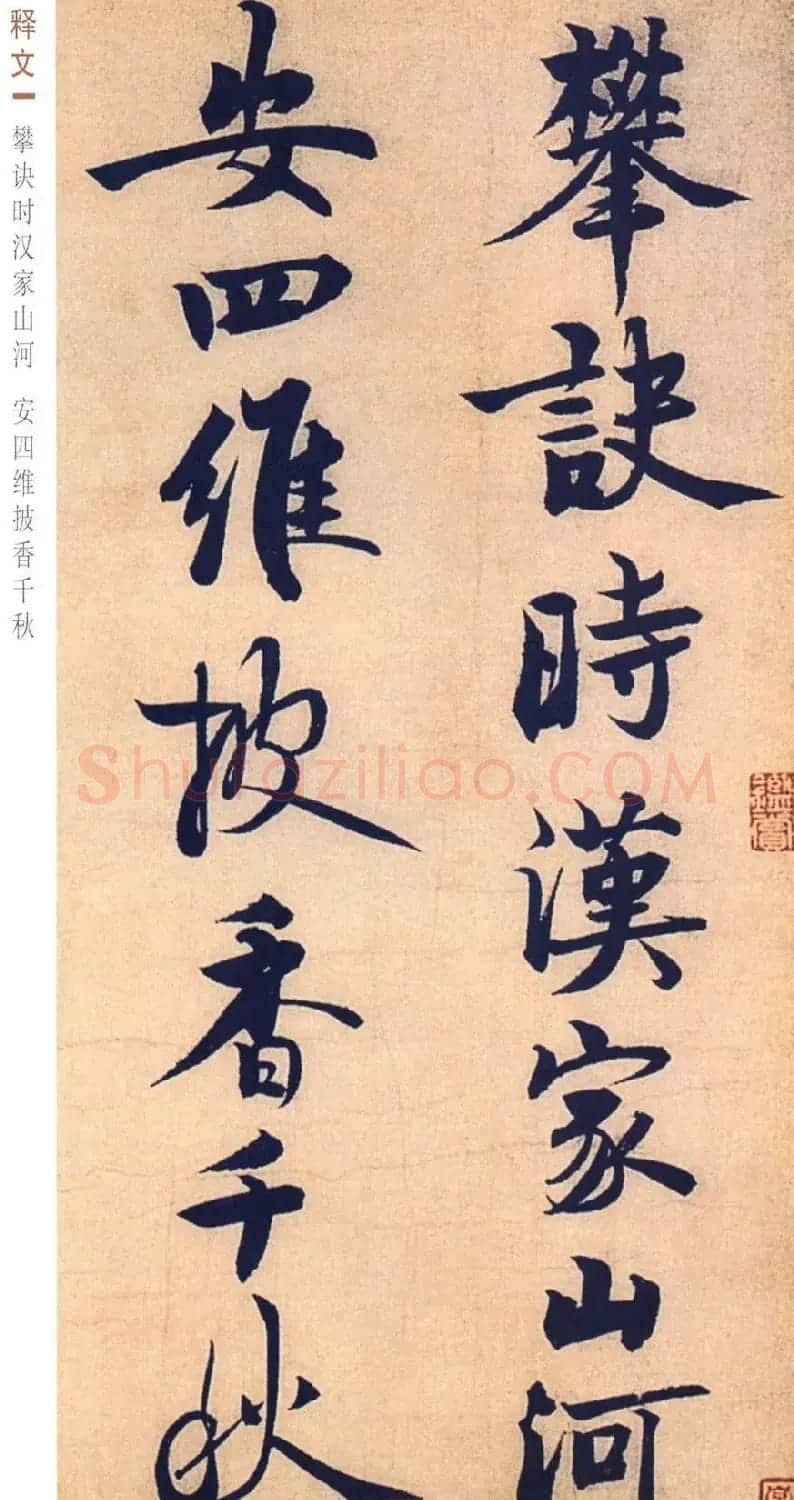 释文
攀诀时汉家山河 安四维披香千秋
攀訣時漢家山河
安四維披香千秋
Shufaziliao.COM
鑑賞